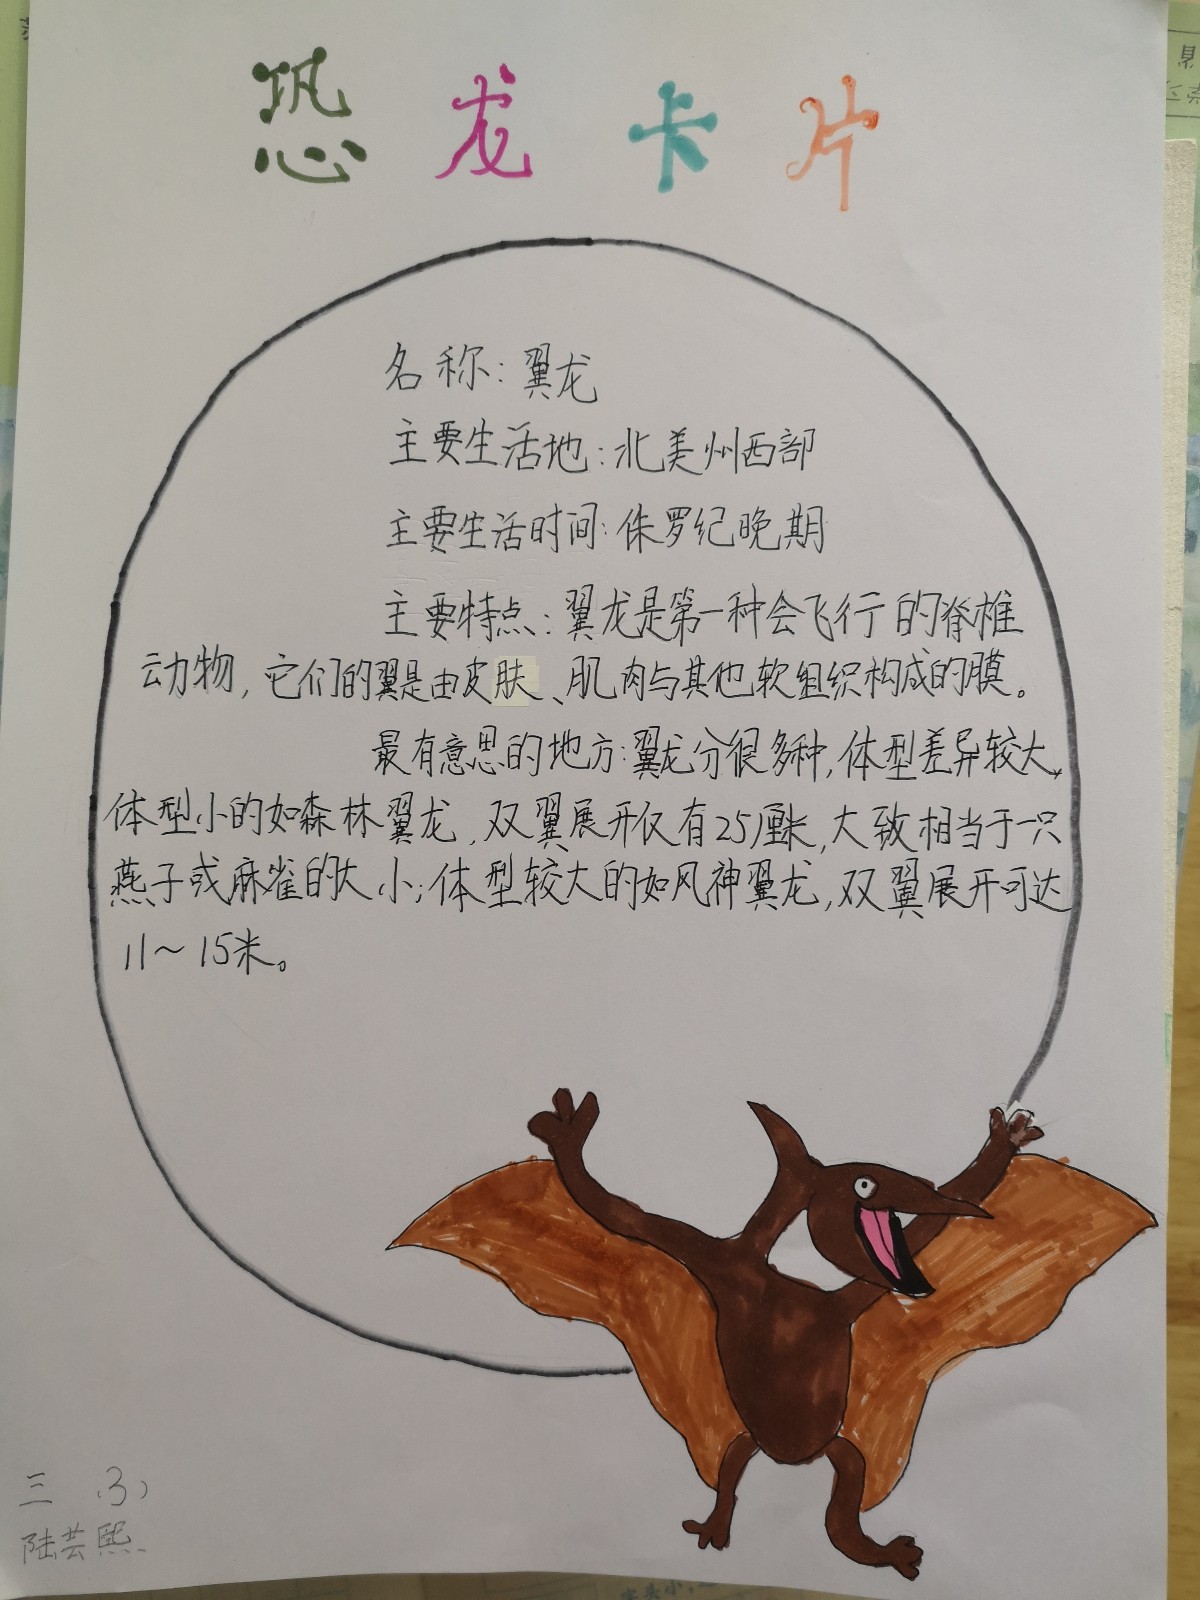 恐龙卡片
名称:翼龙
主要生活地:北美州西部
主要生活时间:侏罗纪晚期
主要特点:翼龙是第一种会飞行的脊椎
动物,它们的翼是由皮肤、肌肉与其他软组织构成的膜。
最有意思的地方:翼龙分很多种,体型差异较大,
体型小的如森林翼龙,双翼展开仅有25厘米,大致相当于一只
燕子或麻雀的大小;体型较大的如风神翼龙,双翼展开可达
11~15米。
三 (3)
陆芸熙